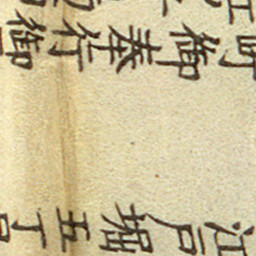 町御奉行御
江戸堀五丁